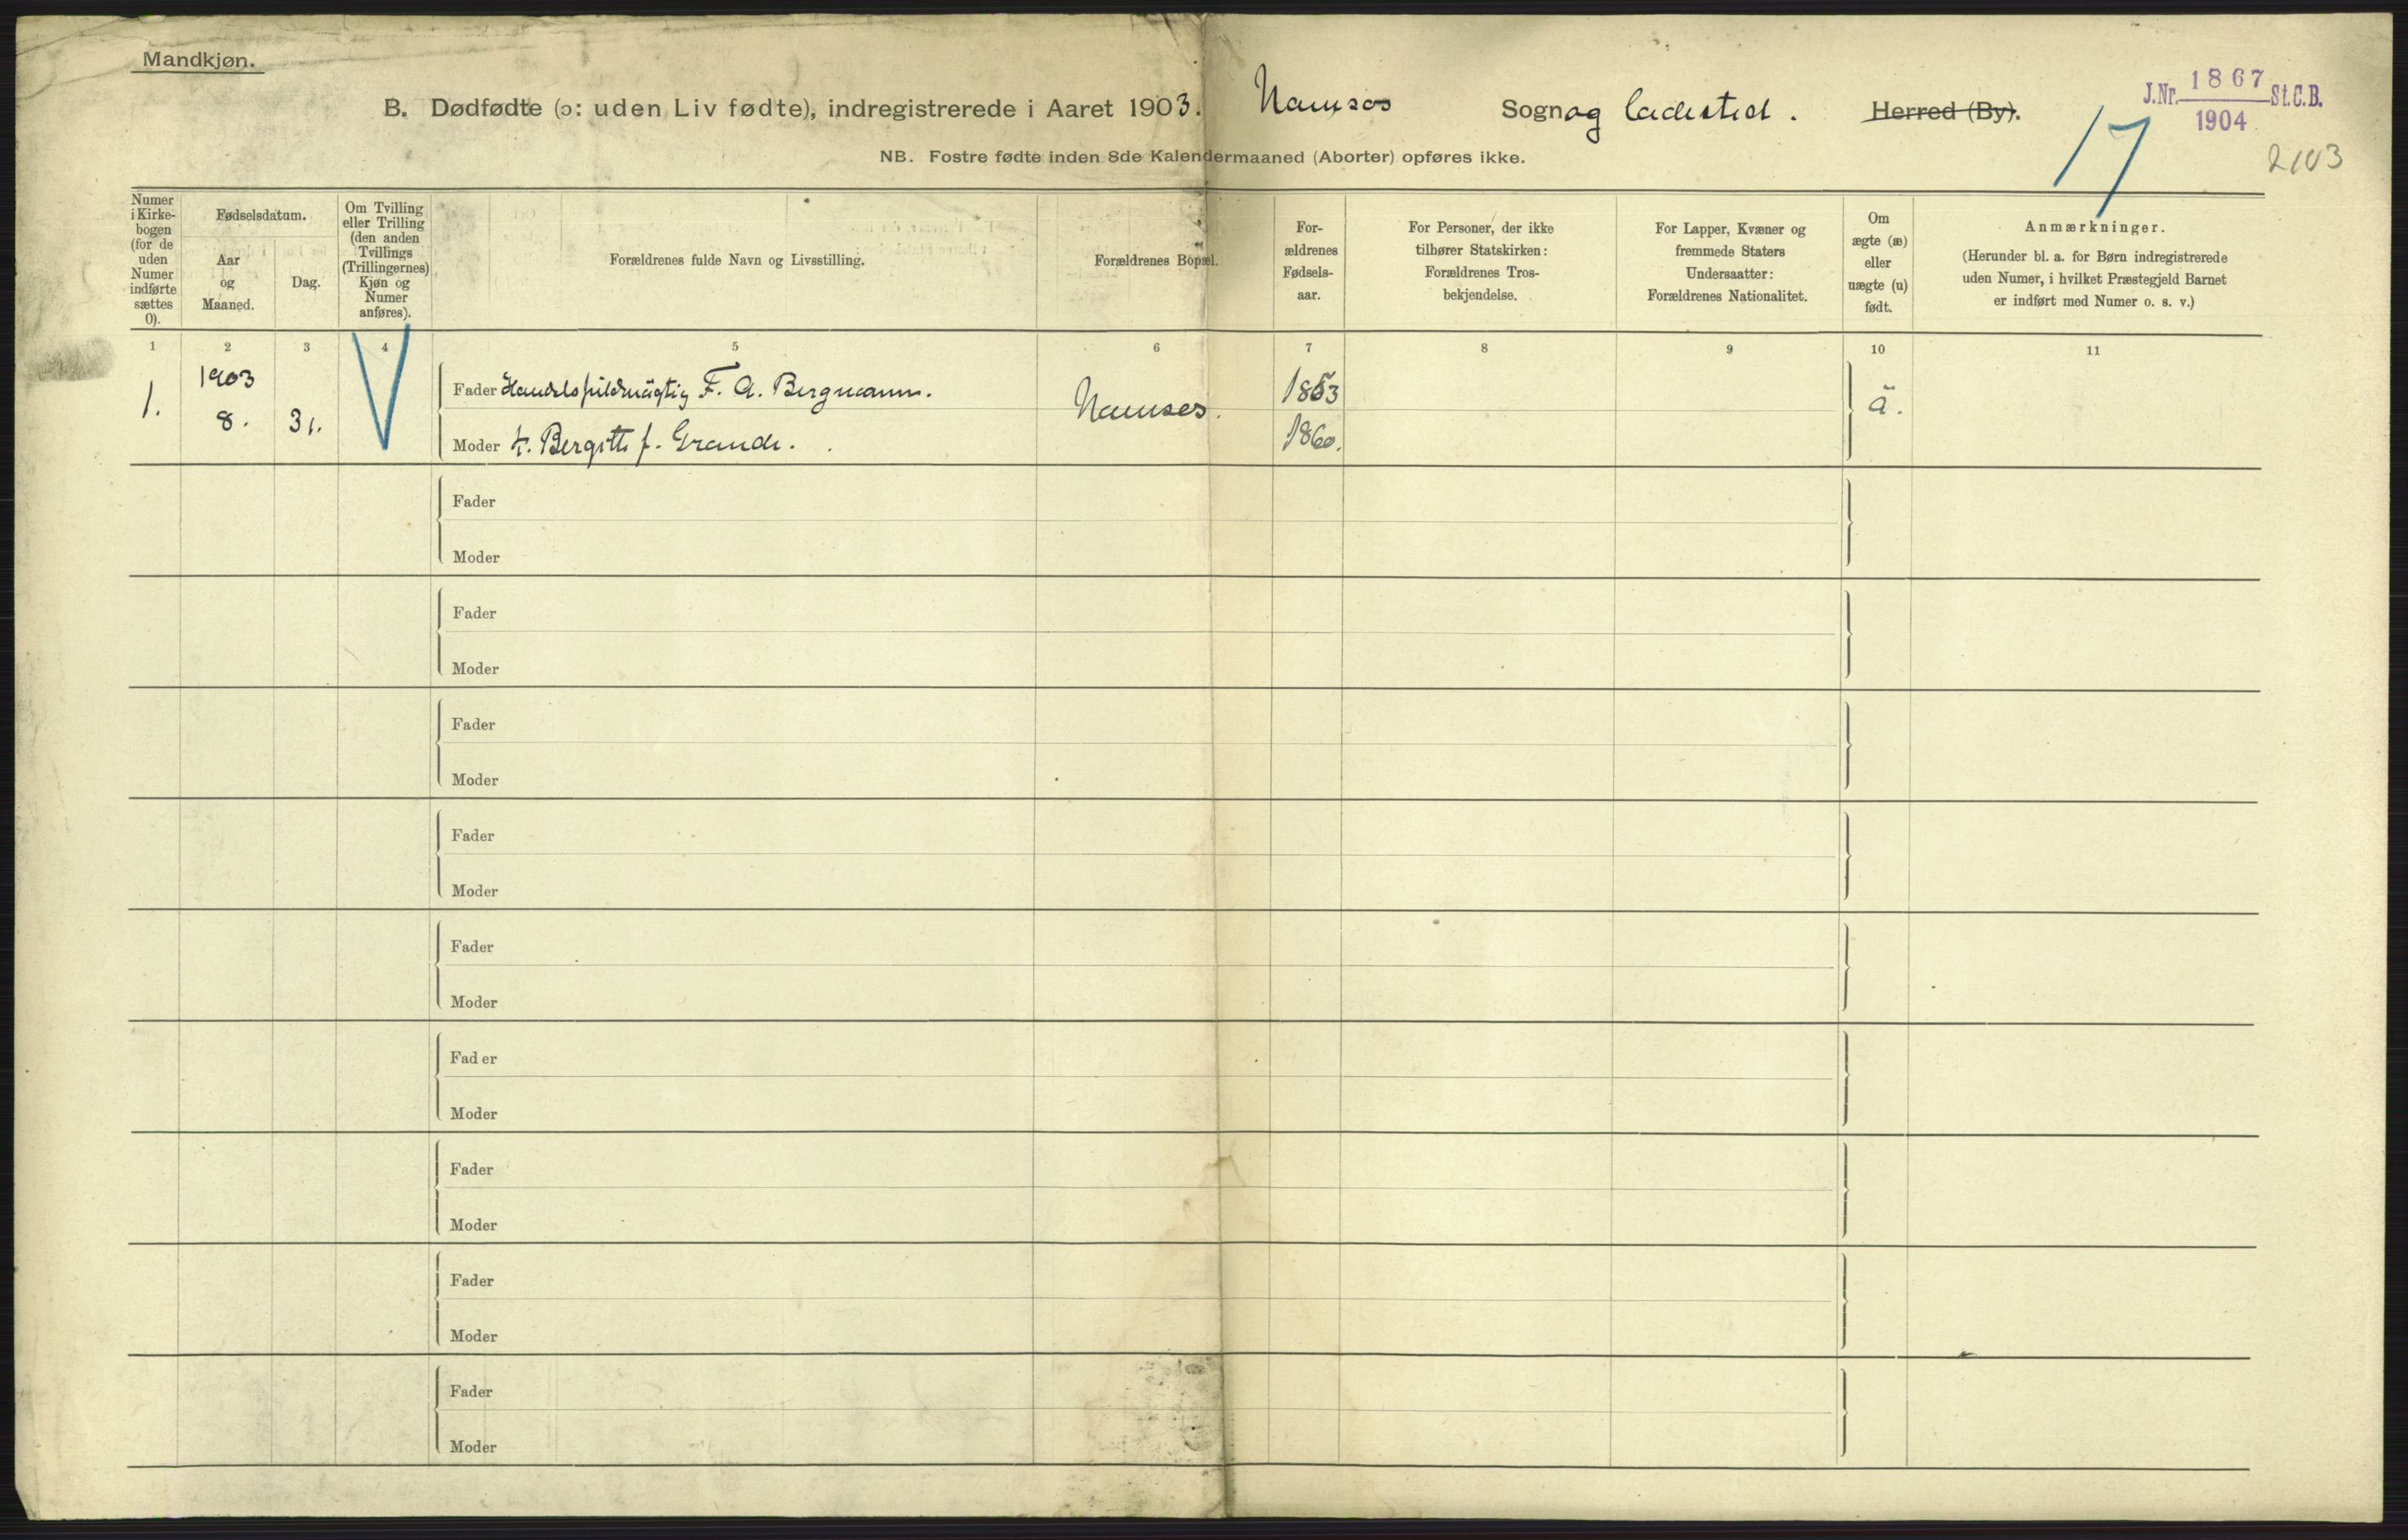 Mandkjøn.
B. Dødfødte (ɔ: uden Liv fødte), indregistrerede i Aaret 1903. Namsos Sogn og ladested. Herred (By).
J.Nr. 1867 St.C.B.
1904
17
2103
NB. Fostre fødte inden 8de Kalendermaaned (Aborter) opføres ikke.
Numer
i Kirke-
bogen
(for de
uden
Numer
indførte
sættes
0).
Fødselsdatum.
Aar
og
Maaned.
Dag.
Om Tvilling
eller Trilling
(den anden
Tvillings
(Trillingernes)
Kjøn og
Numer
anføres).
Forældrenes fulde Navn og Livsstilling.
Forældrenes Bopæl.
For-
ældrenes
Fødsels-
aar.
For Personer, der ikke
tilhører Statskirken:
Forældrenes Tros-
bekjendelse.
For Lapper, Kvæner og
fremmede Staters
Undersaatter:
Forældrenes Nationalitet.
Om
ægte (æ)
eller
uægte (u)
født.
Anmærkninger.
(Herunder bl. a. for Børn indregistrerede
uden Numer, i hvilket Præstegjeld Barnet
er indført med Numer o. s. v.)
1 2 3 4 5 6 7 8 9 10 11
1. 1903
8. 31.
Fader Handelsfuldmägtig F. A. Bergmann.
Moder h. Bergitte f. Grande.
Namsos.
1863
1860.
ä.
Fader
Moder
Fader
Moder
Fader
Moder
Fader
Moder
Fader
Moder
Fader
Moder
Fader
Moder
Fader
Moder
Fader
Moder